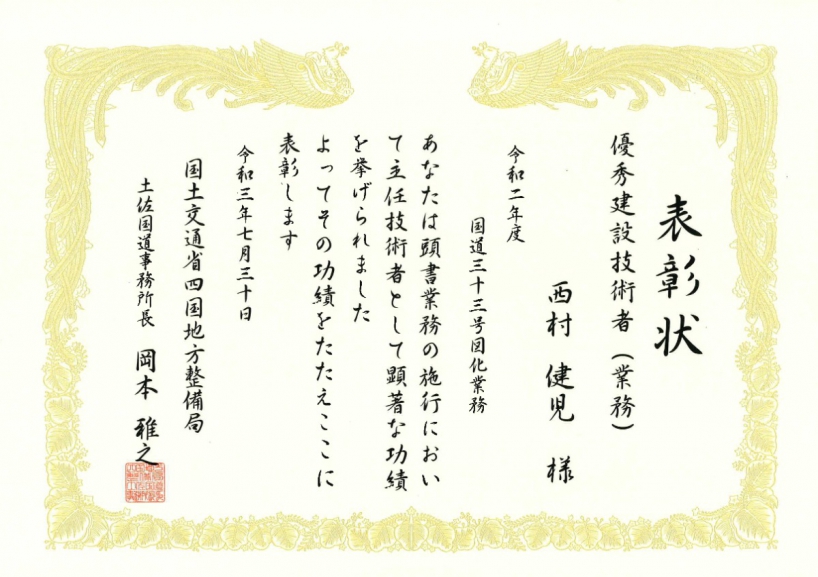 表彰状
優秀建設技術者（業務）
西村 健児 様
令和二年度
国道三十三号図化業務
あなたは頭書業務の施行におい
て主任技術者として顕著な功績
を挙げられました
よってその功績をたたえここに
表彰します
令和三年七月三十日
国土交通省四国地方整備局
土佐国道事務所長 岡本 雅之